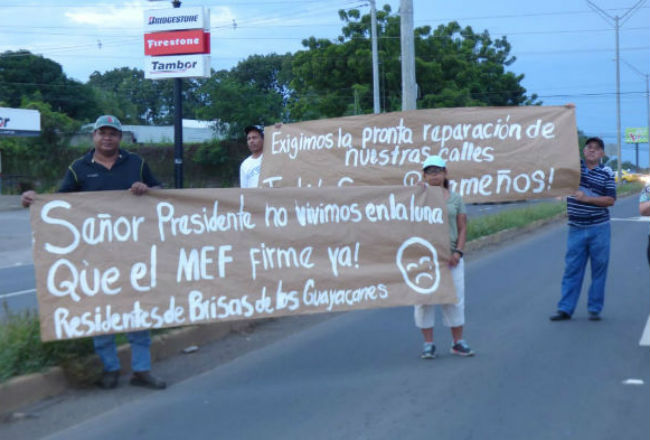 BRIDGESTONE
Firestone
Tambor
Exigimos la pronta reparación de
nuestras calles
meños!
Señor Presidente no vivimos en la luna
Que el MEF firme ya!
Residentes de Brisas de los Guayacanes